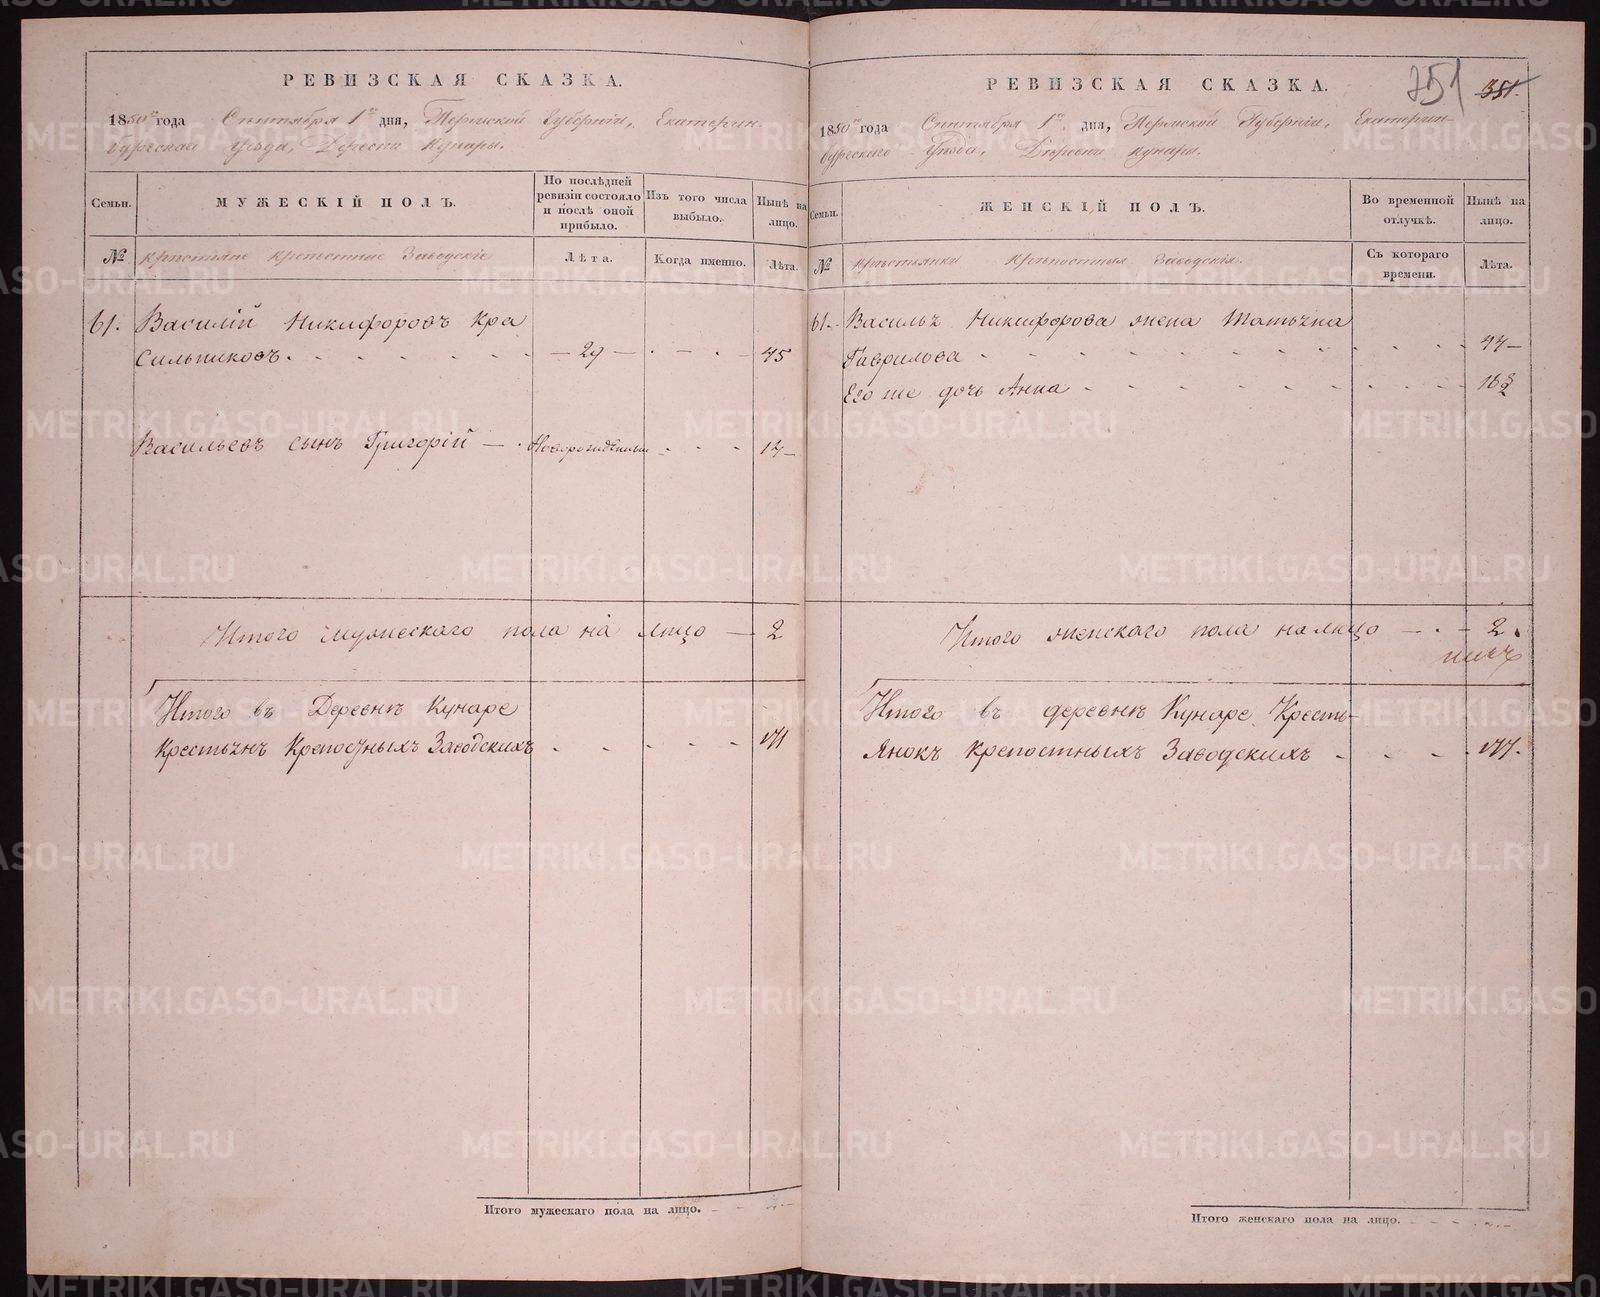 РЕВИЗСКАЯ СКАЗКА.
1850го года Сентября 1го дня, Пермской Губернiи, Екатерин-
бургскаго уѣзда, Деревни Кунары.
Семьи.
МУЖЕСКIЙ ПОЛЪ.
По послѣдней
ревизiи состояло
и послѣ оной
прибыло.
Изъ того числа
выбыло.
Нынѣ на
лицо.
№
Крестьяне крепостные Заводскiе
Лѣта.
Когда именно.
Лѣта.
61. Василiй Никифоровъ Кра
сильниковъ. - 29 - 45
Васильевъ сынъ Григорiй - Новорожденный 14
Итого мужескаго пола на лицо - 2
Итого въ Деревнѣ Кунаре
Крестьянъ Крепостныхъ Заводскихъ 171
Итого мужескаго пола на лицо.
РЕВИЗСКАЯ СКАЗКА.
351 351.
1850го года Сентября 1го дня, Пермской Губернiи, Екатерин-
бургскаго уѣзда, Деревни Кунары.
Семьи.
ЖЕНСКIЙ ПОЛЪ.
Во временной
отлучкѣ.
Нынѣ на
лицо.
№
Крестьянки Крепостныя Заводскiя.
Съ котораго
времени.
Лѣта.
61. Василья Никифорова жена Татьяна
Гаврилова 44
Его же дочь Анна 16
Итого женскаго пола на лицо - 2.
Итого въ деревнѣ Кунаре Кресть-
Янокъ крепостныхъ Заводскихъ 177.
Итого женскаго пола на лицо.
METRIKI.GASO-URAL.RU